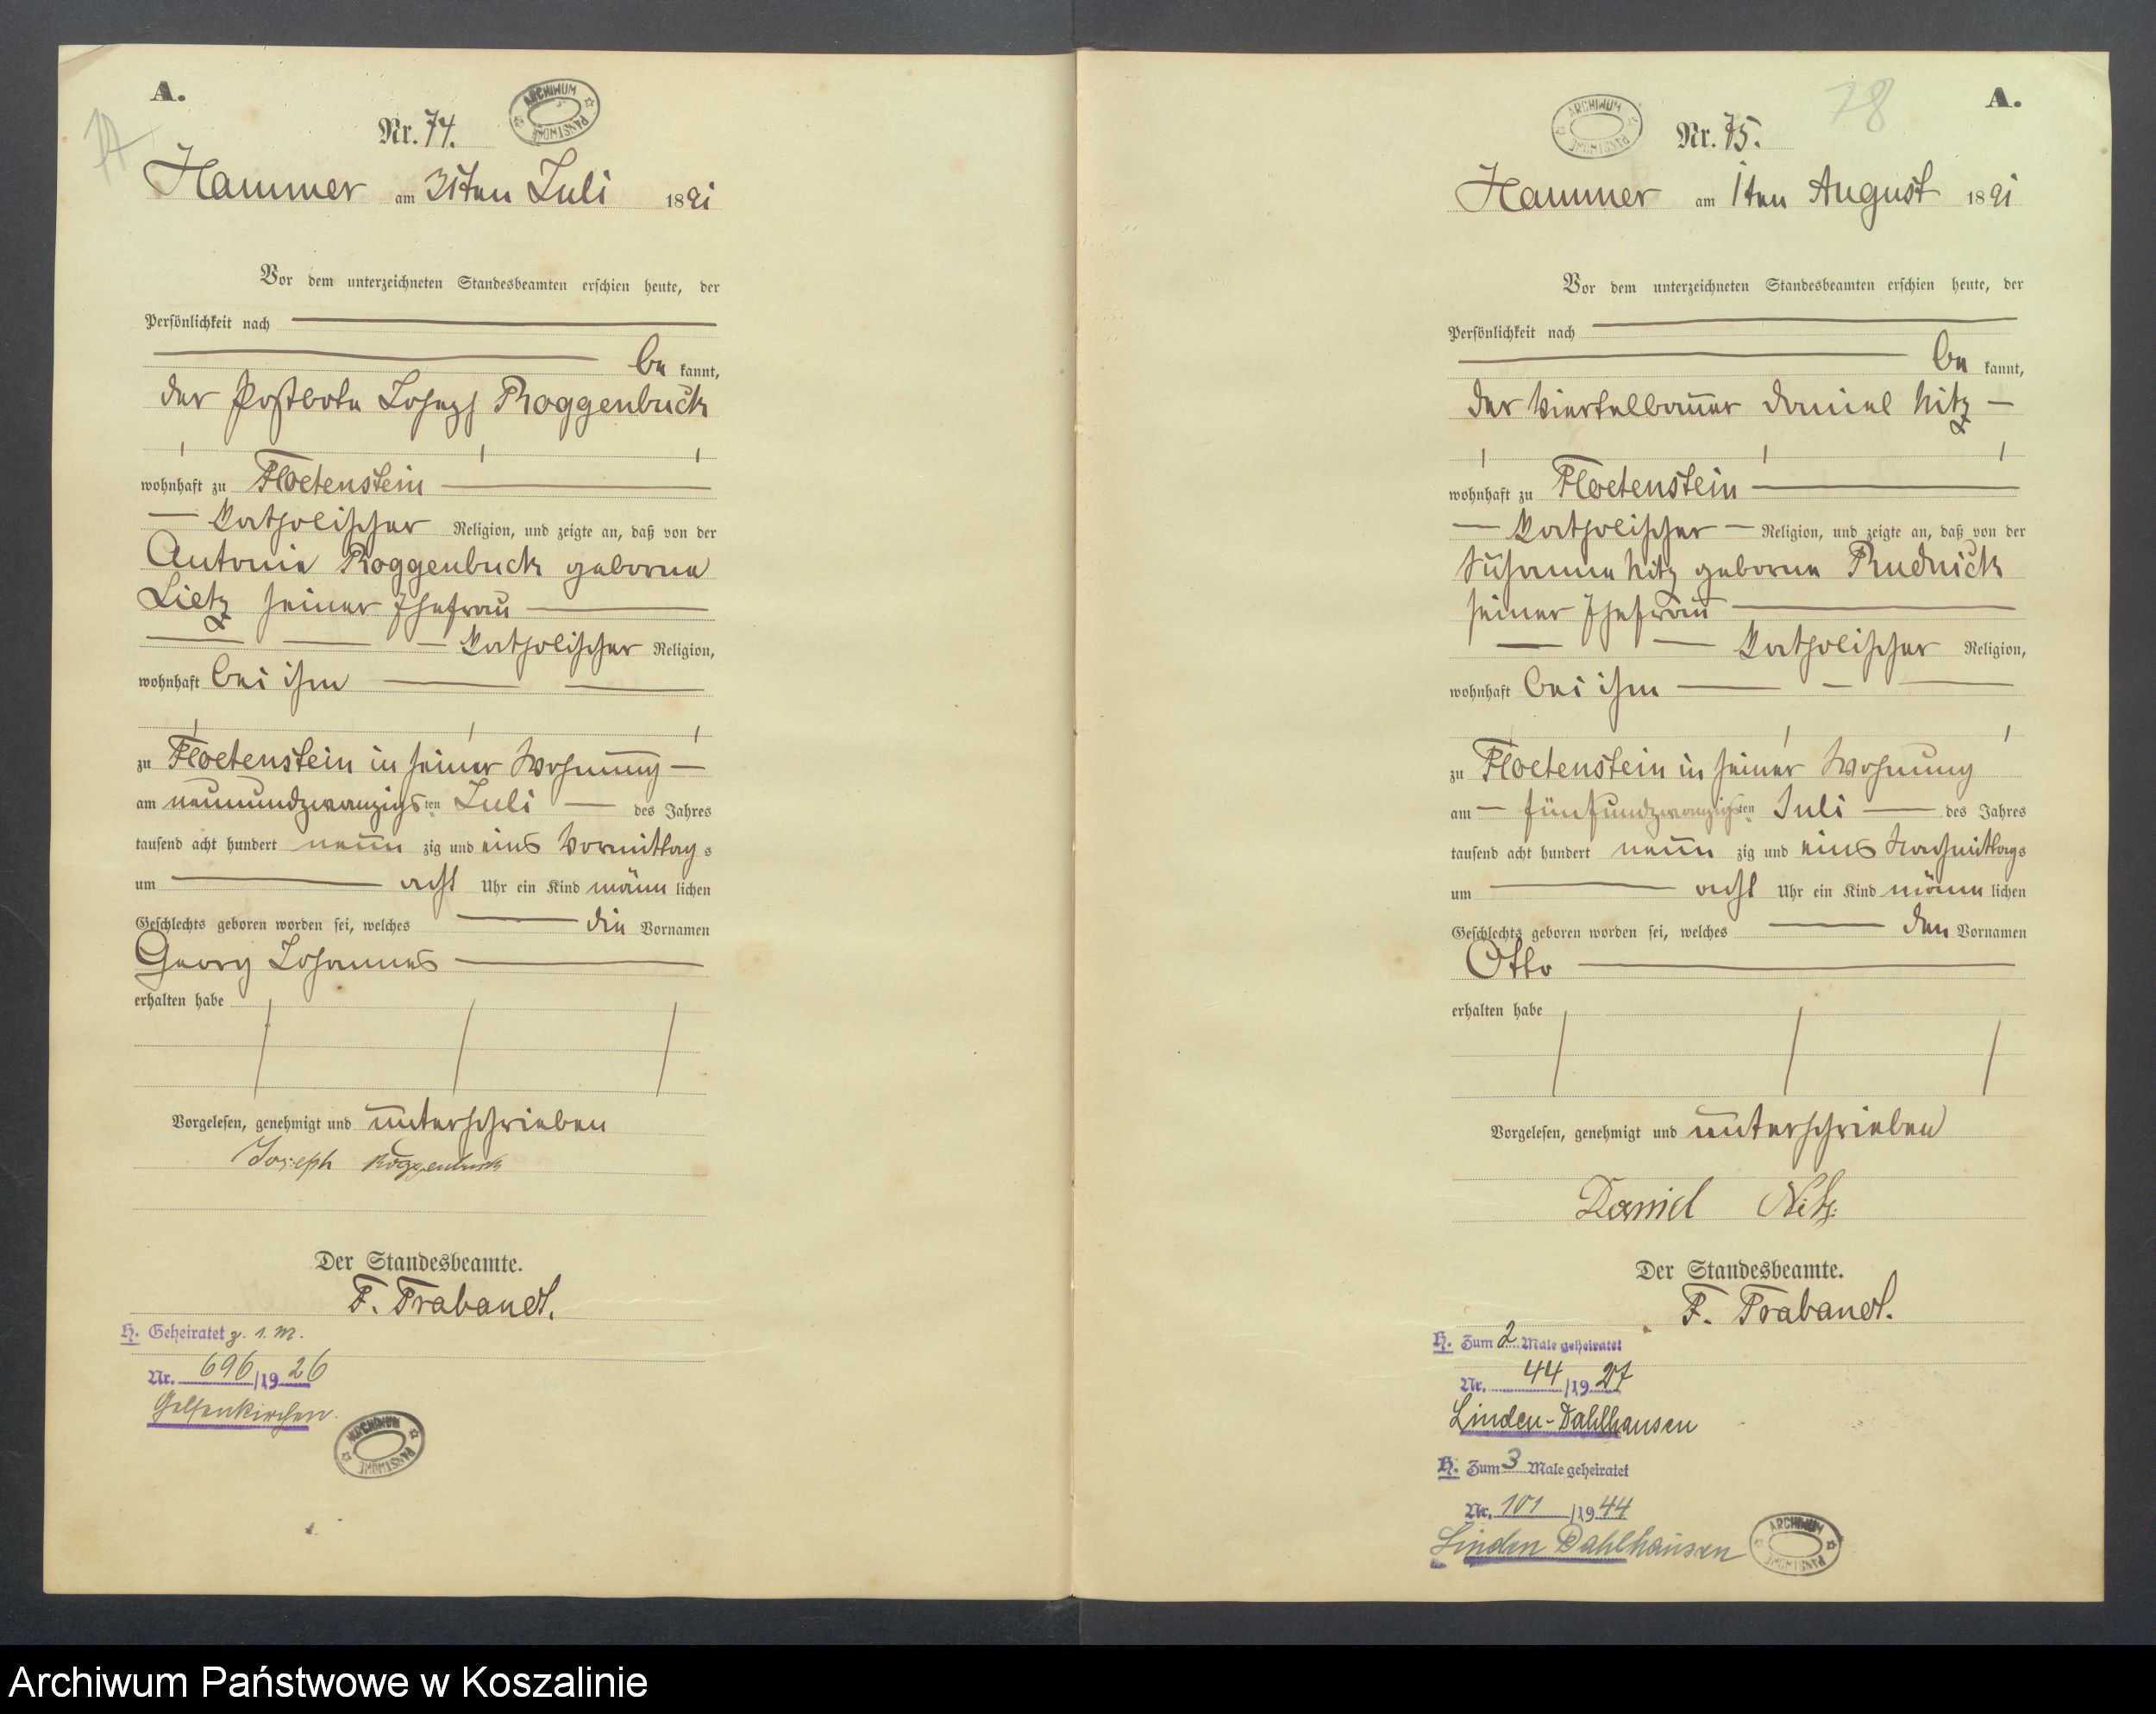 A.
Nr. 74.
ARCHIWUM PAŃSTWOWE
Hammer am 31ten Juli 1891
Vor dem unterzeichneten Standesbeamten erschien heute, der
Persönlichkeit nach
be kannt,
der Postbote Joseph Roggenbuck
wohnhaft zu Floetenstein
katholischer Religion, und zeigte an, daß von der
Antonie Roggenbuck geborne
Lietz seiner Ehefrau
katholischer Religion,
wohnhaft bei ihm
zu Floetenstein in seiner Wohnung
am neunundzwanzigsten Juli des Jahres
tausend acht hundert neun zig und eins Vormittags
um acht Uhr ein Kind männ lichen
Geschlechts geboren worden sei, welches die Vornamen
Georg Johannes
erhalten habe
Vorgelesen, genehmigt und unterschrieben
Joseph Roggenbuck
Der Standesbeamte.
F. Trabandt.
H. Geheiratet z. 1. M.
Nr. 696/1926
Gelsenkirchen.
ARCHIWUM PAŃSTWOWE
78
A.
ARCHIWUM PAŃSTWOWE
Nr. 75.
Hammer am 1ten August 1891
Vor dem unterzeichneten Standesbeamten erschien heute, der
Persönlichkeit nach
be kannt,
der Viertelbauer Daniel Nitz
wohnhaft zu Floetenstein
katholischer Religion, und zeigte an, daß von der
Susanna Nitz geborne Rudnick
seiner Ehefrau
katholischer Religion,
wohnhaft bei ihm
zu Floetenstein in seiner Wohnung
am fünfundzwanzigsten Juli des Jahres
tausend acht hundert neun zig und eins Nachmittags
um acht Uhr ein Kind männ lichen
Geschlechts geboren worden sei, welches den Vornamen
Otto
erhalten habe
Vorgelesen, genehmigt und unterschrieben
Daniel Nitz.
Der Standesbeamte.
F. Trabandt.
H. Zum 2 Male geheiratet
Nr. 44/1927
Linden-Dahlhausen
H. Zum 3 Male geheiratet
Nr. 101/1944
Linden Dahlhausen
ARCHIWUM PAŃSTWOWE
Archiwum Państwowe w Koszalinie